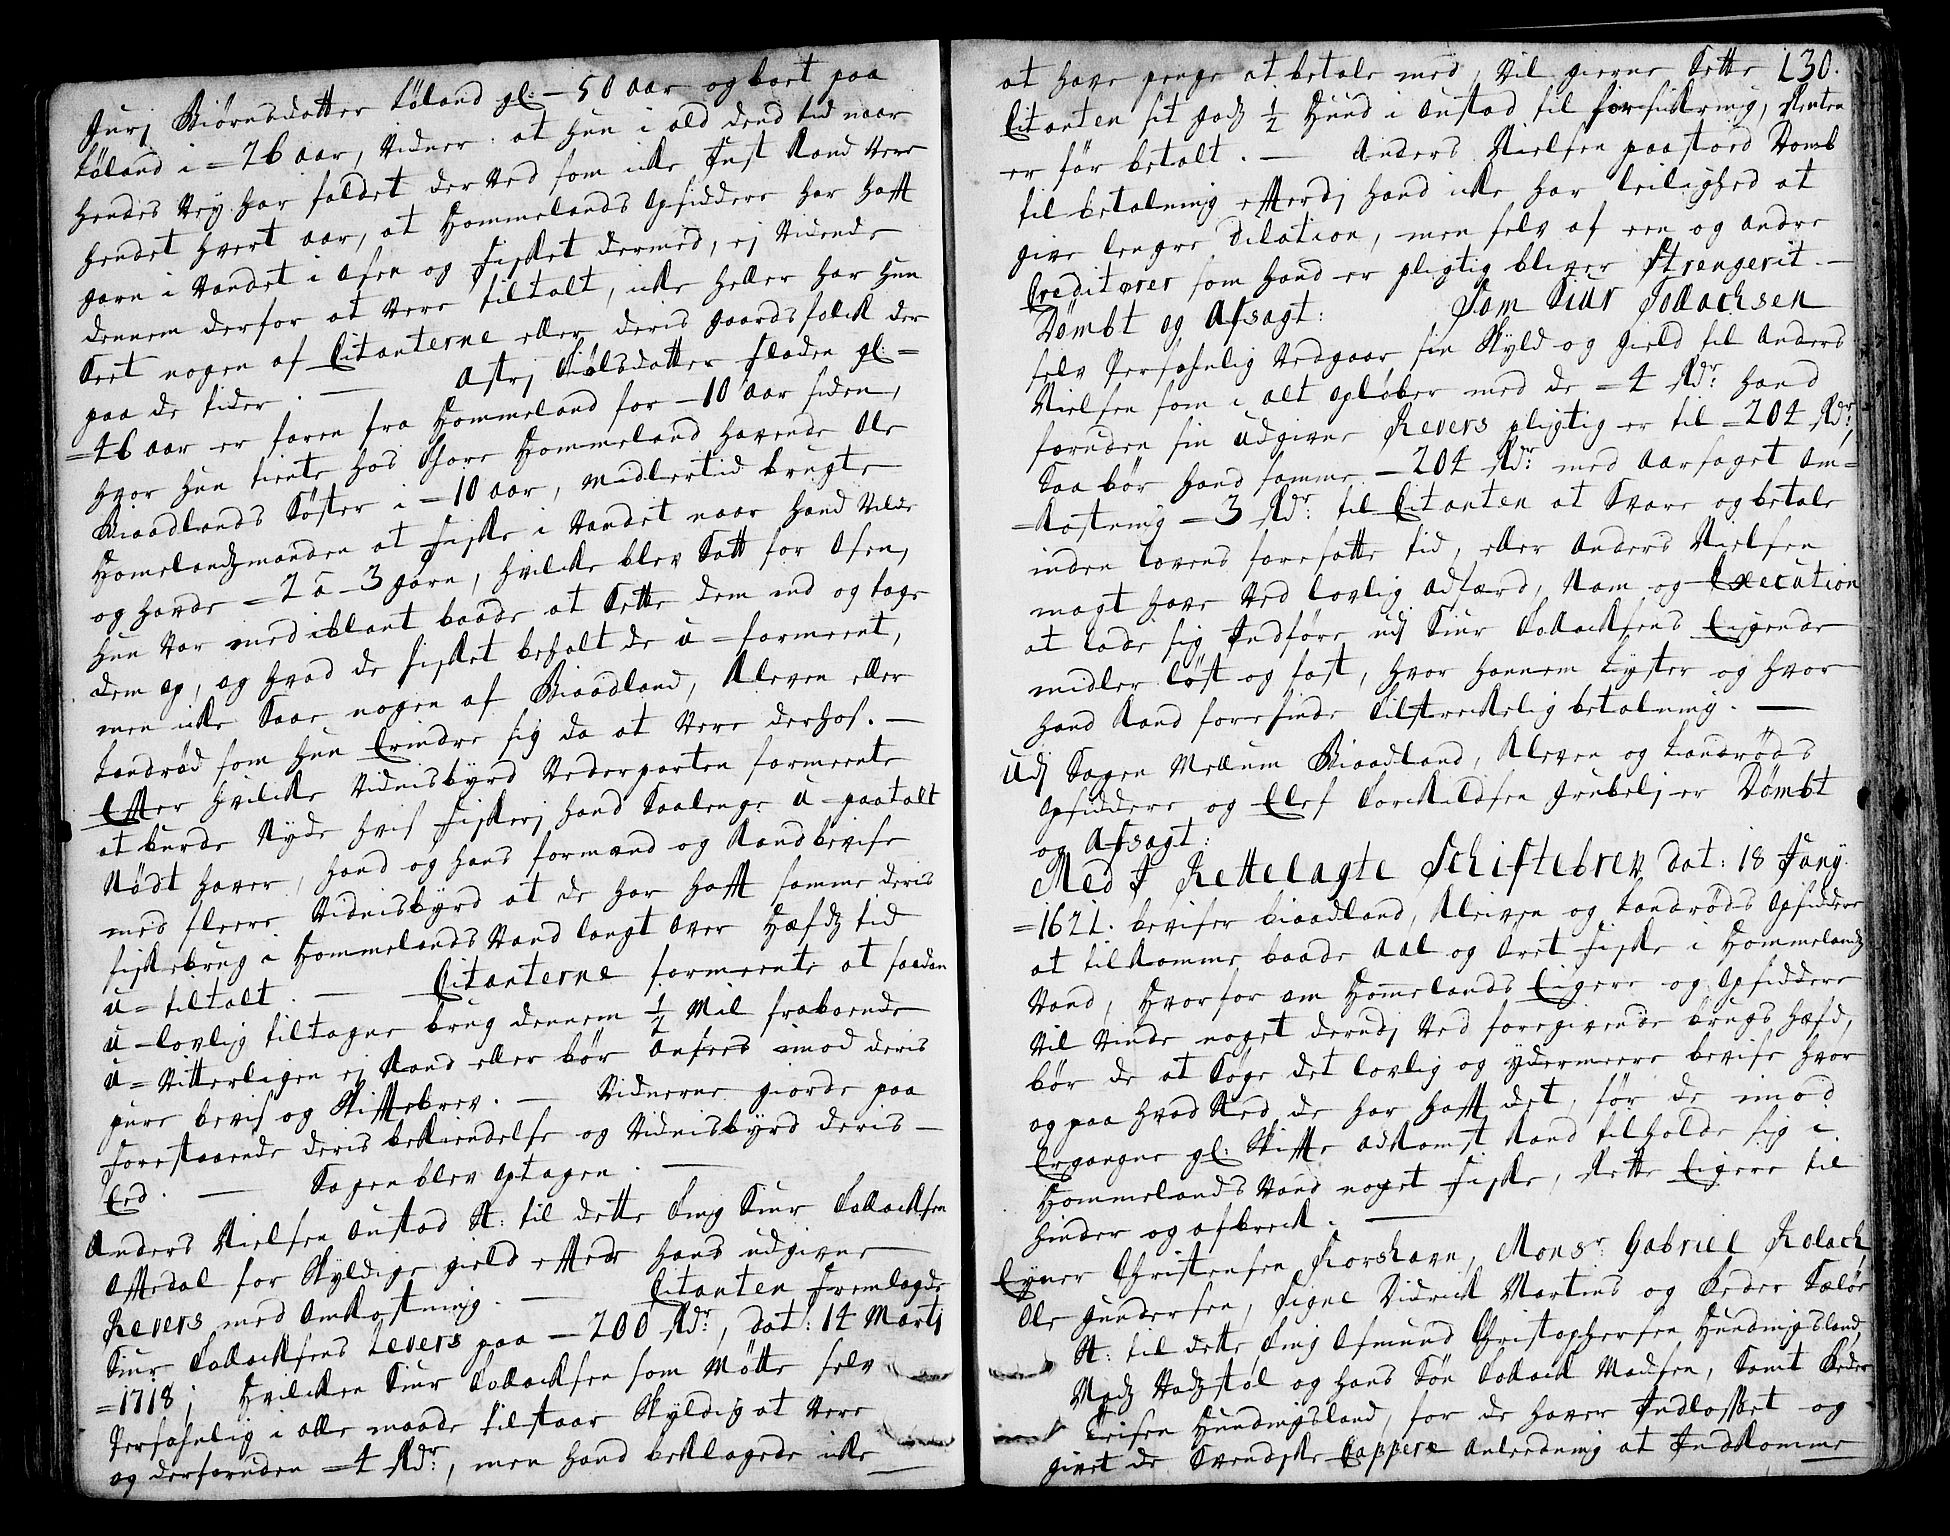 Gurj Biörnsdatter Löland gl: – 50 aar og boet paa
Löland i = 26 aar, vidner: at hun i ald dend tid naar
hendes vey har faldet der ved som icke Just kand være
hendet hvert aar, at Hommelands opsiddere har hafft
garn i vandet i osen og fisket dermed, ej vidende
dennem derfor at være tiltalt, icke heller har hun
seet nogen af Citanterne eller deris gaardsfolck der
paa de tider. — Astrj Siølsdatter Floden gl: =
= 46 aar er faren fra Hommeland for – 10 aar siden,
hvor hun tiente hos Thore Hommeland havende Ole
Biaadlands Söster i = 10 aar, midlertid brugte
Homelandzmanden at fiske i vandet naar hand vilde
og havde = 2 a – 3 garn, hvilcke blev satt for osen,
hun var med iblant baade at sette dem ud og tage
dem op, og hvad de fisket beholt de u = formeent,
men icke saae nogen af Biaadland, Kleven eller
Landröd som hun Erindre sig da at være derhos. —
Effter hvilcke vidnisbyrd vederparten formeente
at burde nyde hvis fiskerj hand saalenge u – paatalt
nödt haver, hand og hans formænd og kand bevise
med fleere vidnisbyrd at de har hafft samme deris
fiskebrug i Hommelands vand langt over Hæfdz tid
u = tiltalt. — Citanterne formeente at saadan
u – lovlig tiltagne brug dennem ½ Mil fraboende
u = vitterligen ej kand eller bör ansees imod deris
pure bevis og skifftebrev. — Vidnerne giorde paa
forestaaende deris bekiendelse og vidnisbyrd deris –
Eed. — Sagen blev optagen. —
Anders Nielsen Austad St: til dette ting Siur Tollacksen
Ossedal for skyldige gield effter hans udgivne
Revers med omkostning. — Citanten fremlagde
Siur Tollacksens Revers paa – 200 Rdr:, dat: 14 Martj
= 1718; Hvilcken Siur Tollacksen som mötte selv
Persohnlig i alle maade tilstaar skyldig at være
og desforuden = 4 Rdr:, men hand beklagede icke
130.
at have penge at betale med, vil gierne sette
Citanten sit godz ½ Hund i Austad til forsickring, Renten
er för betalt. — Anders Nielsen paastod Domb
til betalning efftterdj hand icke har leilighed at
give lengre Dilation, men selv af een og andre
Creditorer som hand er pligtig bliver Strengerit. —
Dömbt og Afsagt: Som Siur Tollachsen
selv Persohnlig vedgaar sin skyld og gield til Anders
Nielsen som i alt opløber med de = 4 Rdr: hand
foruden sin udgivne Revers pligtig er til = 204 Rdr:,
Saa bör hand samme – 204 Rdr: med aarsaget om=
=kostning = 3 Rdr: til Citanten at svare og betale
inden lovens foresatte tid, eller Anders Nielsen
magt have ved lovlig adfærd, Nam og Execution
at lade sig Indföre udj Siur Tollacksens Eigende
midler löst og fast, hvor hannem lyster og hvor
hand kand forefinde tilstreckelig betalning. —
Udj Sagen mellum Biaadland, Kleven og Landröds
opsiddere og Elef Torkildsen Grubelj er Dömbt
og Afsagt:
Med I Rettelagte Schiftebrev dat: 18 Junj
= 1621. beviser Biaadland, Kleven og Landröds opsiddere
at tilkomme baade aal og öret fiske i Hommelandz
Vand, Hvorfor om Homelands Eigere og opsiddere
vil vinde noget derudj ved foregivende brugs hæfd,
bör de at söge det lovlig og ydermeere bevise hvor
og paa hvad sted de har hafft det, för de imod
Ergangne gl: skiffte adkomst kand tilholde sig i
Hommelands vand noget fiske, Rette Eigere til
hinder og afbreck. —
Eyner Christensen Korshavn, Monsr: Gabriel Rolach
Ole Gundersen, Signe Didrick Martins og Peder Sælör
St: til dette ting Asmund Christophersen Hundingsland,
Madz Vadzstöl og hans Sön Tollack Madsen, Samt Peder
Hundingsland, for de haver Indlosset og
givet de Svendske Cappere anleedning at Indkomme